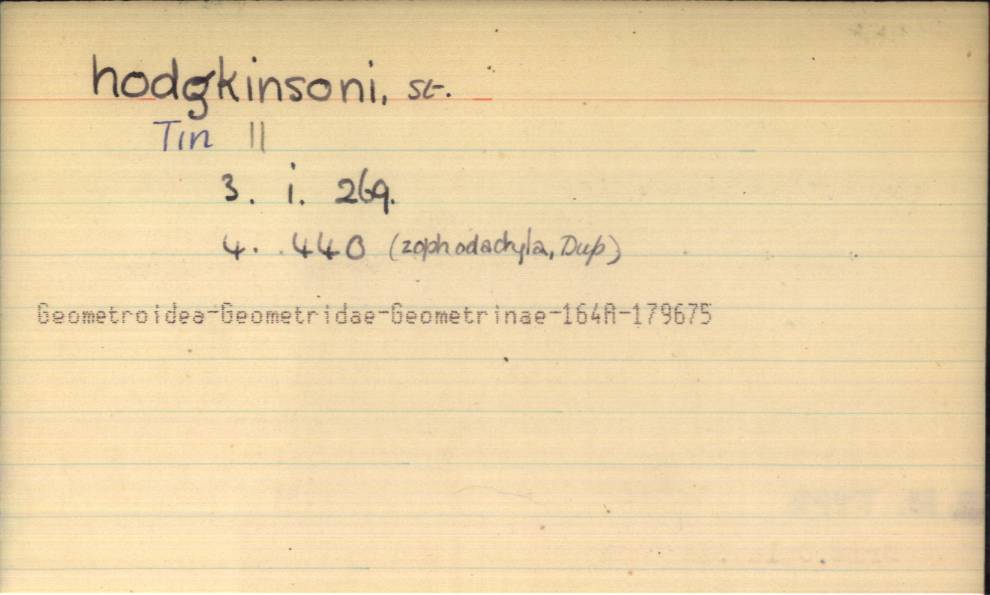 hodgkinsoni, St.
Tin 11
3. i. 269.
4. 440 (zophodachyla, Dup)
Geometroidea-Geometridae-Geometrinae-164A-179675